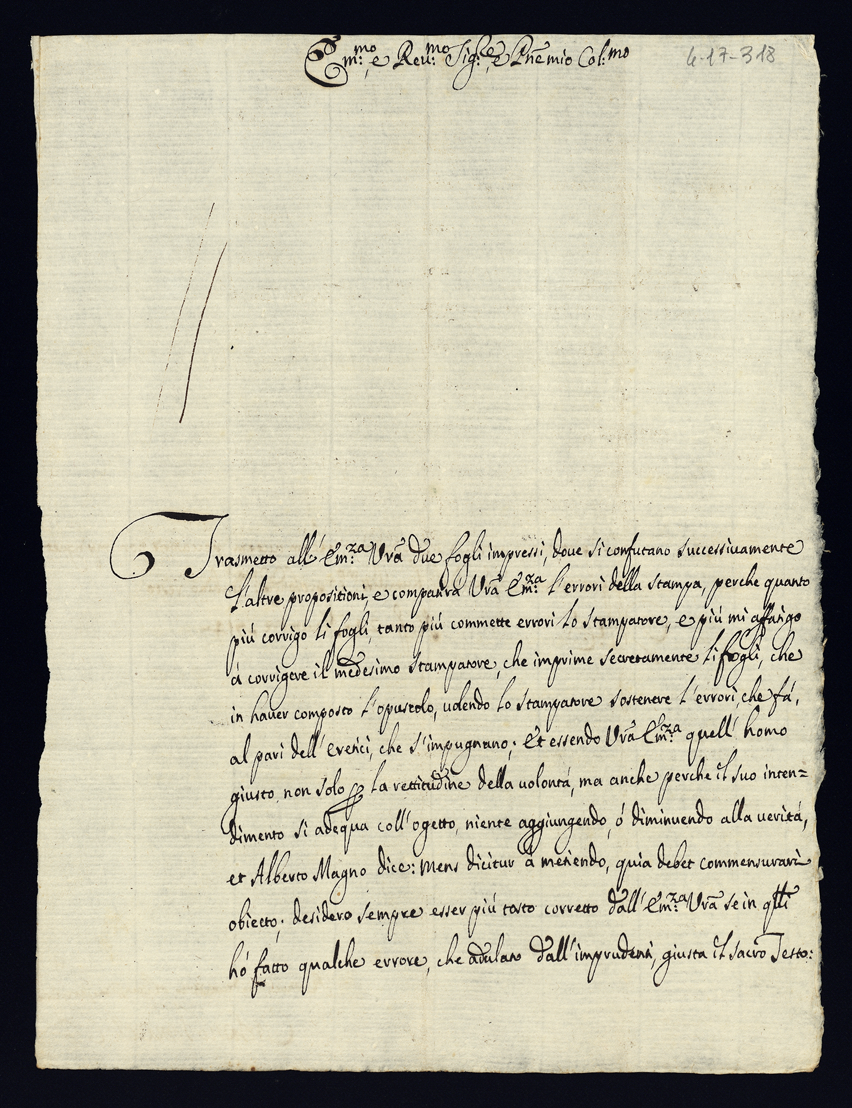 Em:mo, e Reu:mo Sig:re, e Prn̄e mio Col:mo
4-17-318
Trasmetto all' Em:za Vrā due fogli impressi, doue si confutano successiuamente
l'altre propositioni, e compatirà Vrā Em:za l'errori della stampa, perche quanto
più corrigo li fogli, tanto più commette errori lo stampatore, e più mi affatigo
à corrigere il medesimo stampatore, che imprime secretamente li fogli, che
in hauer composto l'opuscolo, uolendo lo stampatore sostenere l'errori, che fà,
al pari dell'eretici, che s'impugnano; Et essendo Vrā Em:za quell'homo
giusto, non solo per la rettitudine della volontà, ma anche perche il suo inten=
dimento si adequa coll'ogetto, niente aggiungendo, ò diminuendo alla uerità,
et Alberto Magno dice: Mens dicitur à metiendo, quia debet commensurari
obiecto; desidero sempre esser più tosto corretto dall'Em:za Vrā se in qlli
hò fatto qualche errore, che adulato dall'imprudenti, giusta il sacro Testo: